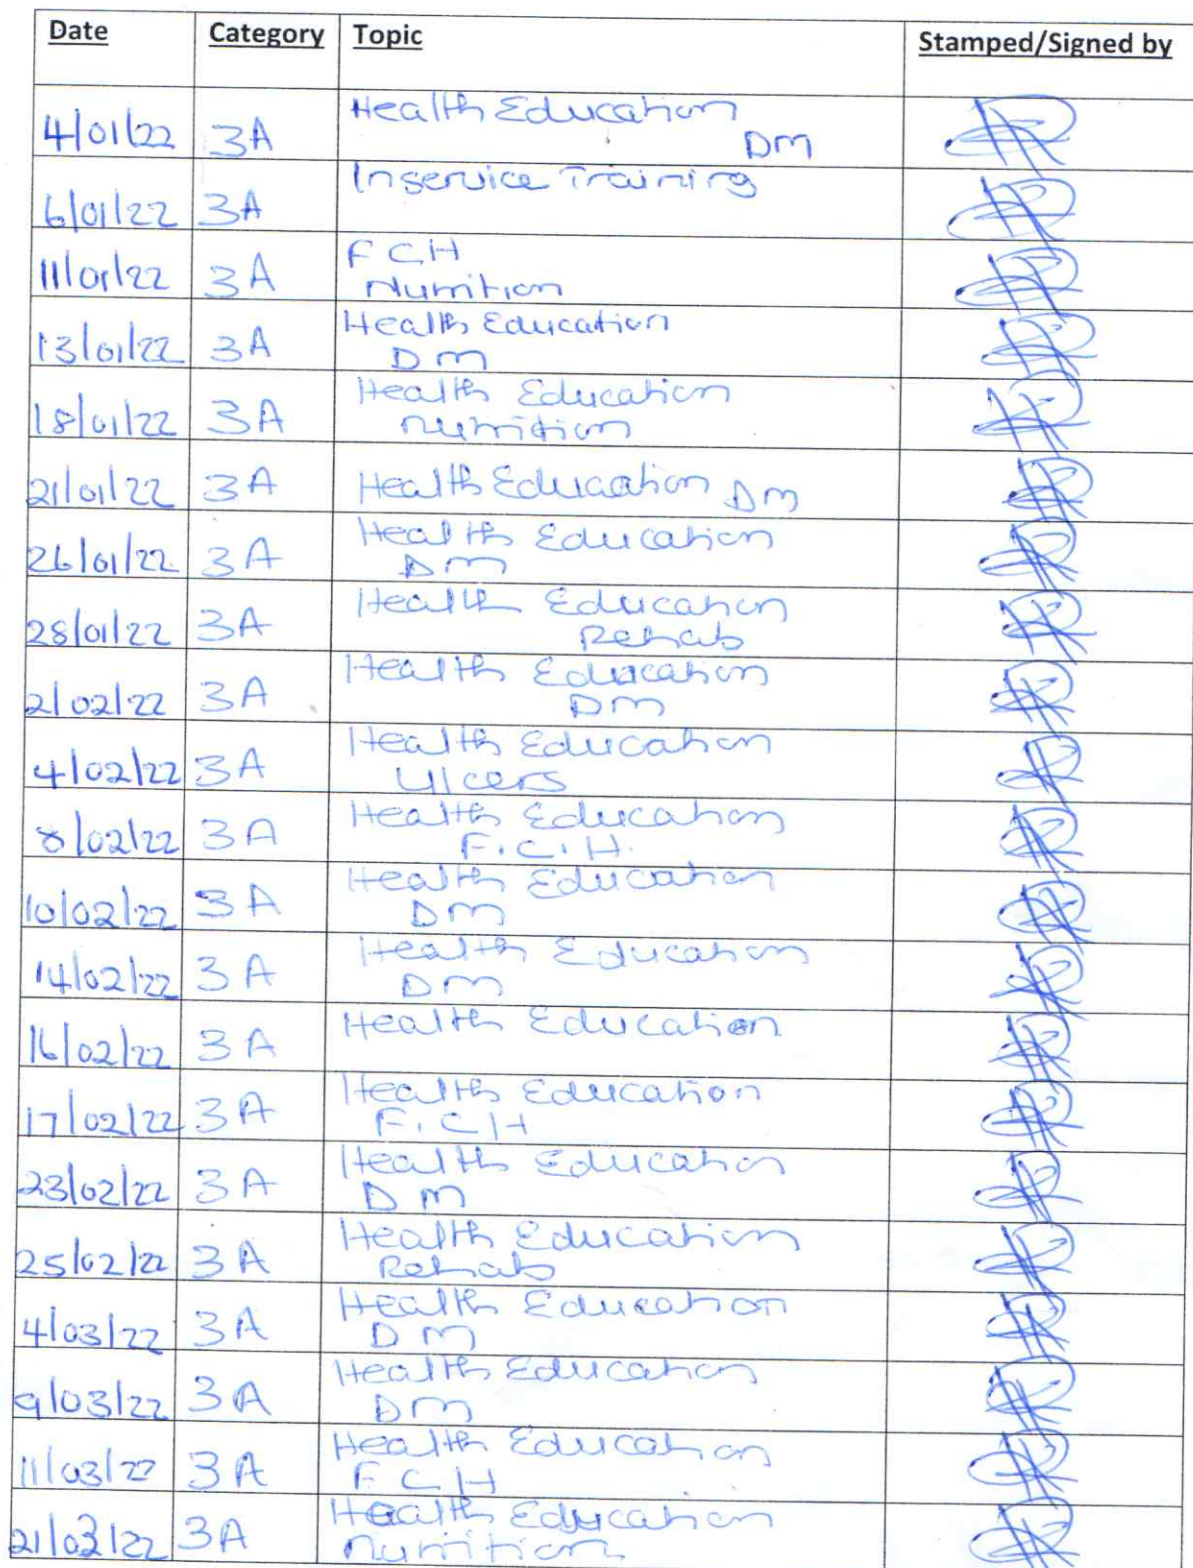 Date Category Topic Stamped/Signed by
4/01/22 3A Health Education
DM
6/01/22 3A Inservice Training
11/01/22 3A FCH
Nutrition
13/01/22 3A Health Education
DM
18/01/22 3A Health Education
nutrition
21/01/22 3A Health Education DM
26/01/22 3A Health Education
DM
28/01/22 3A Health Education
Rehab
2/02/22 3A Health Education
DM
4/02/22 3A Health Education
Ulcers
8/02/22 3A Health Education
F.C.H.
10/02/22 3A Health Education
DM
14/02/22 3A Health Education
DM
16/02/22 3A Health Education
17/02/22 3A Health Education
F.CH
23/02/22 3A Health Education
DM
25/02/22 3A Health Education
Rehab
4/03/22 3A Health Education
DM
9/03/22 3A Health Education
DM
11/03/22 3A Health Education
FCH
21/03/22 3A Health Education
Nutrition